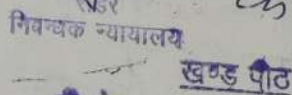 निवन्धक न्यायालय
खण्ड पीठ